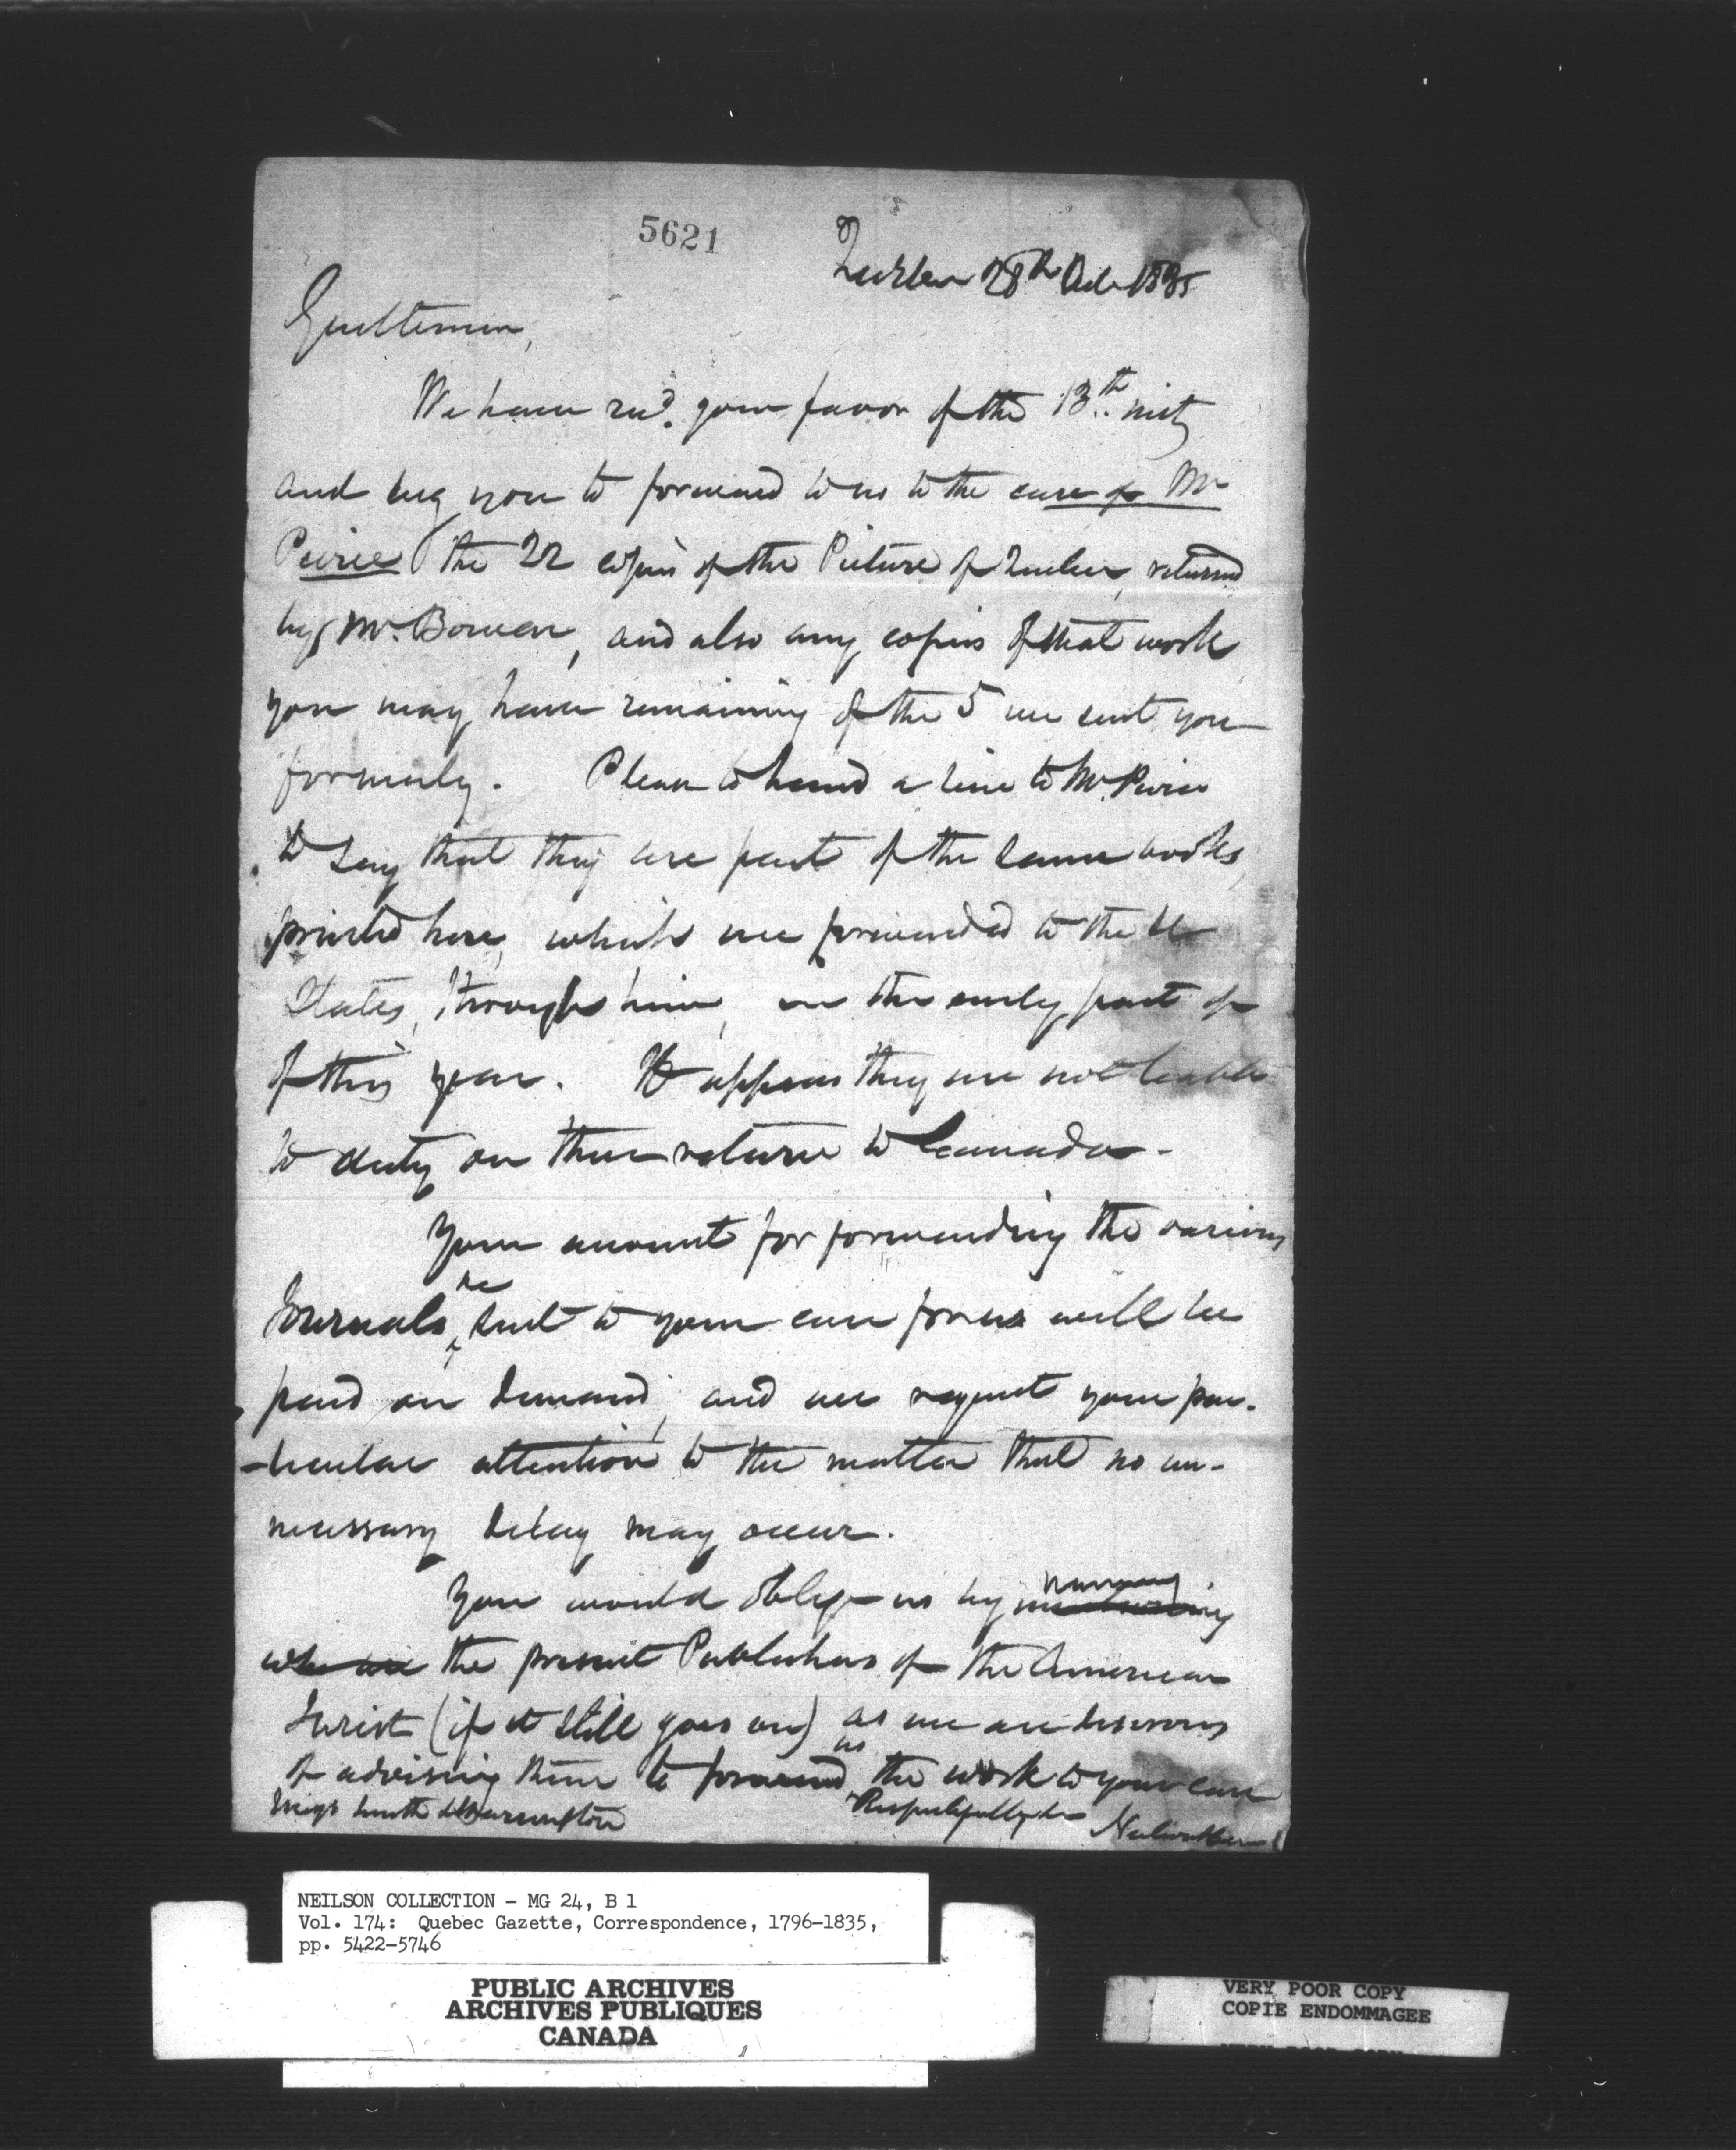 5621
Quebec 28th Oct 1835
Gentlemen,
We have recd. your favor of the 13th. inst
and beg you to forward to us to the care of Mr
Peirce the 22 copies of the Picture of Quebec, returned
by Mr. Bowen, and also any copies of that work
you may have remaining of the 5 we sent you
formerly. Please to hand a line to Mr. Peirce
to say that they are part of the same books,
printed here, which we forwarded to the U
States, through him, in the early part of
of this year. It appears they are not liable
to duty on their return to Canada.
Your account for forwarding the various
Journals, &c sent to your care for us will be
paid on demand, and we request your par-
-ticular attention to the matter that no un-
necessary delay may occur.
You would oblige us by naming
who are the present Publishers of the American
Jurist (if it still goes on) as we are desirous
of advising them to forward us the work to your care
Respectfully
NEILSON COLLECTION - MG 24, B 1
Vol. 174: Quebec Gazette, Correspondence, 1796-1835,
pp. 5422-5746
PUBLIC ARCHIVES
ARCHIVES PUBLIQUES
CANADA
VERY POOR COPY
COPIE ENDOMMAGEE